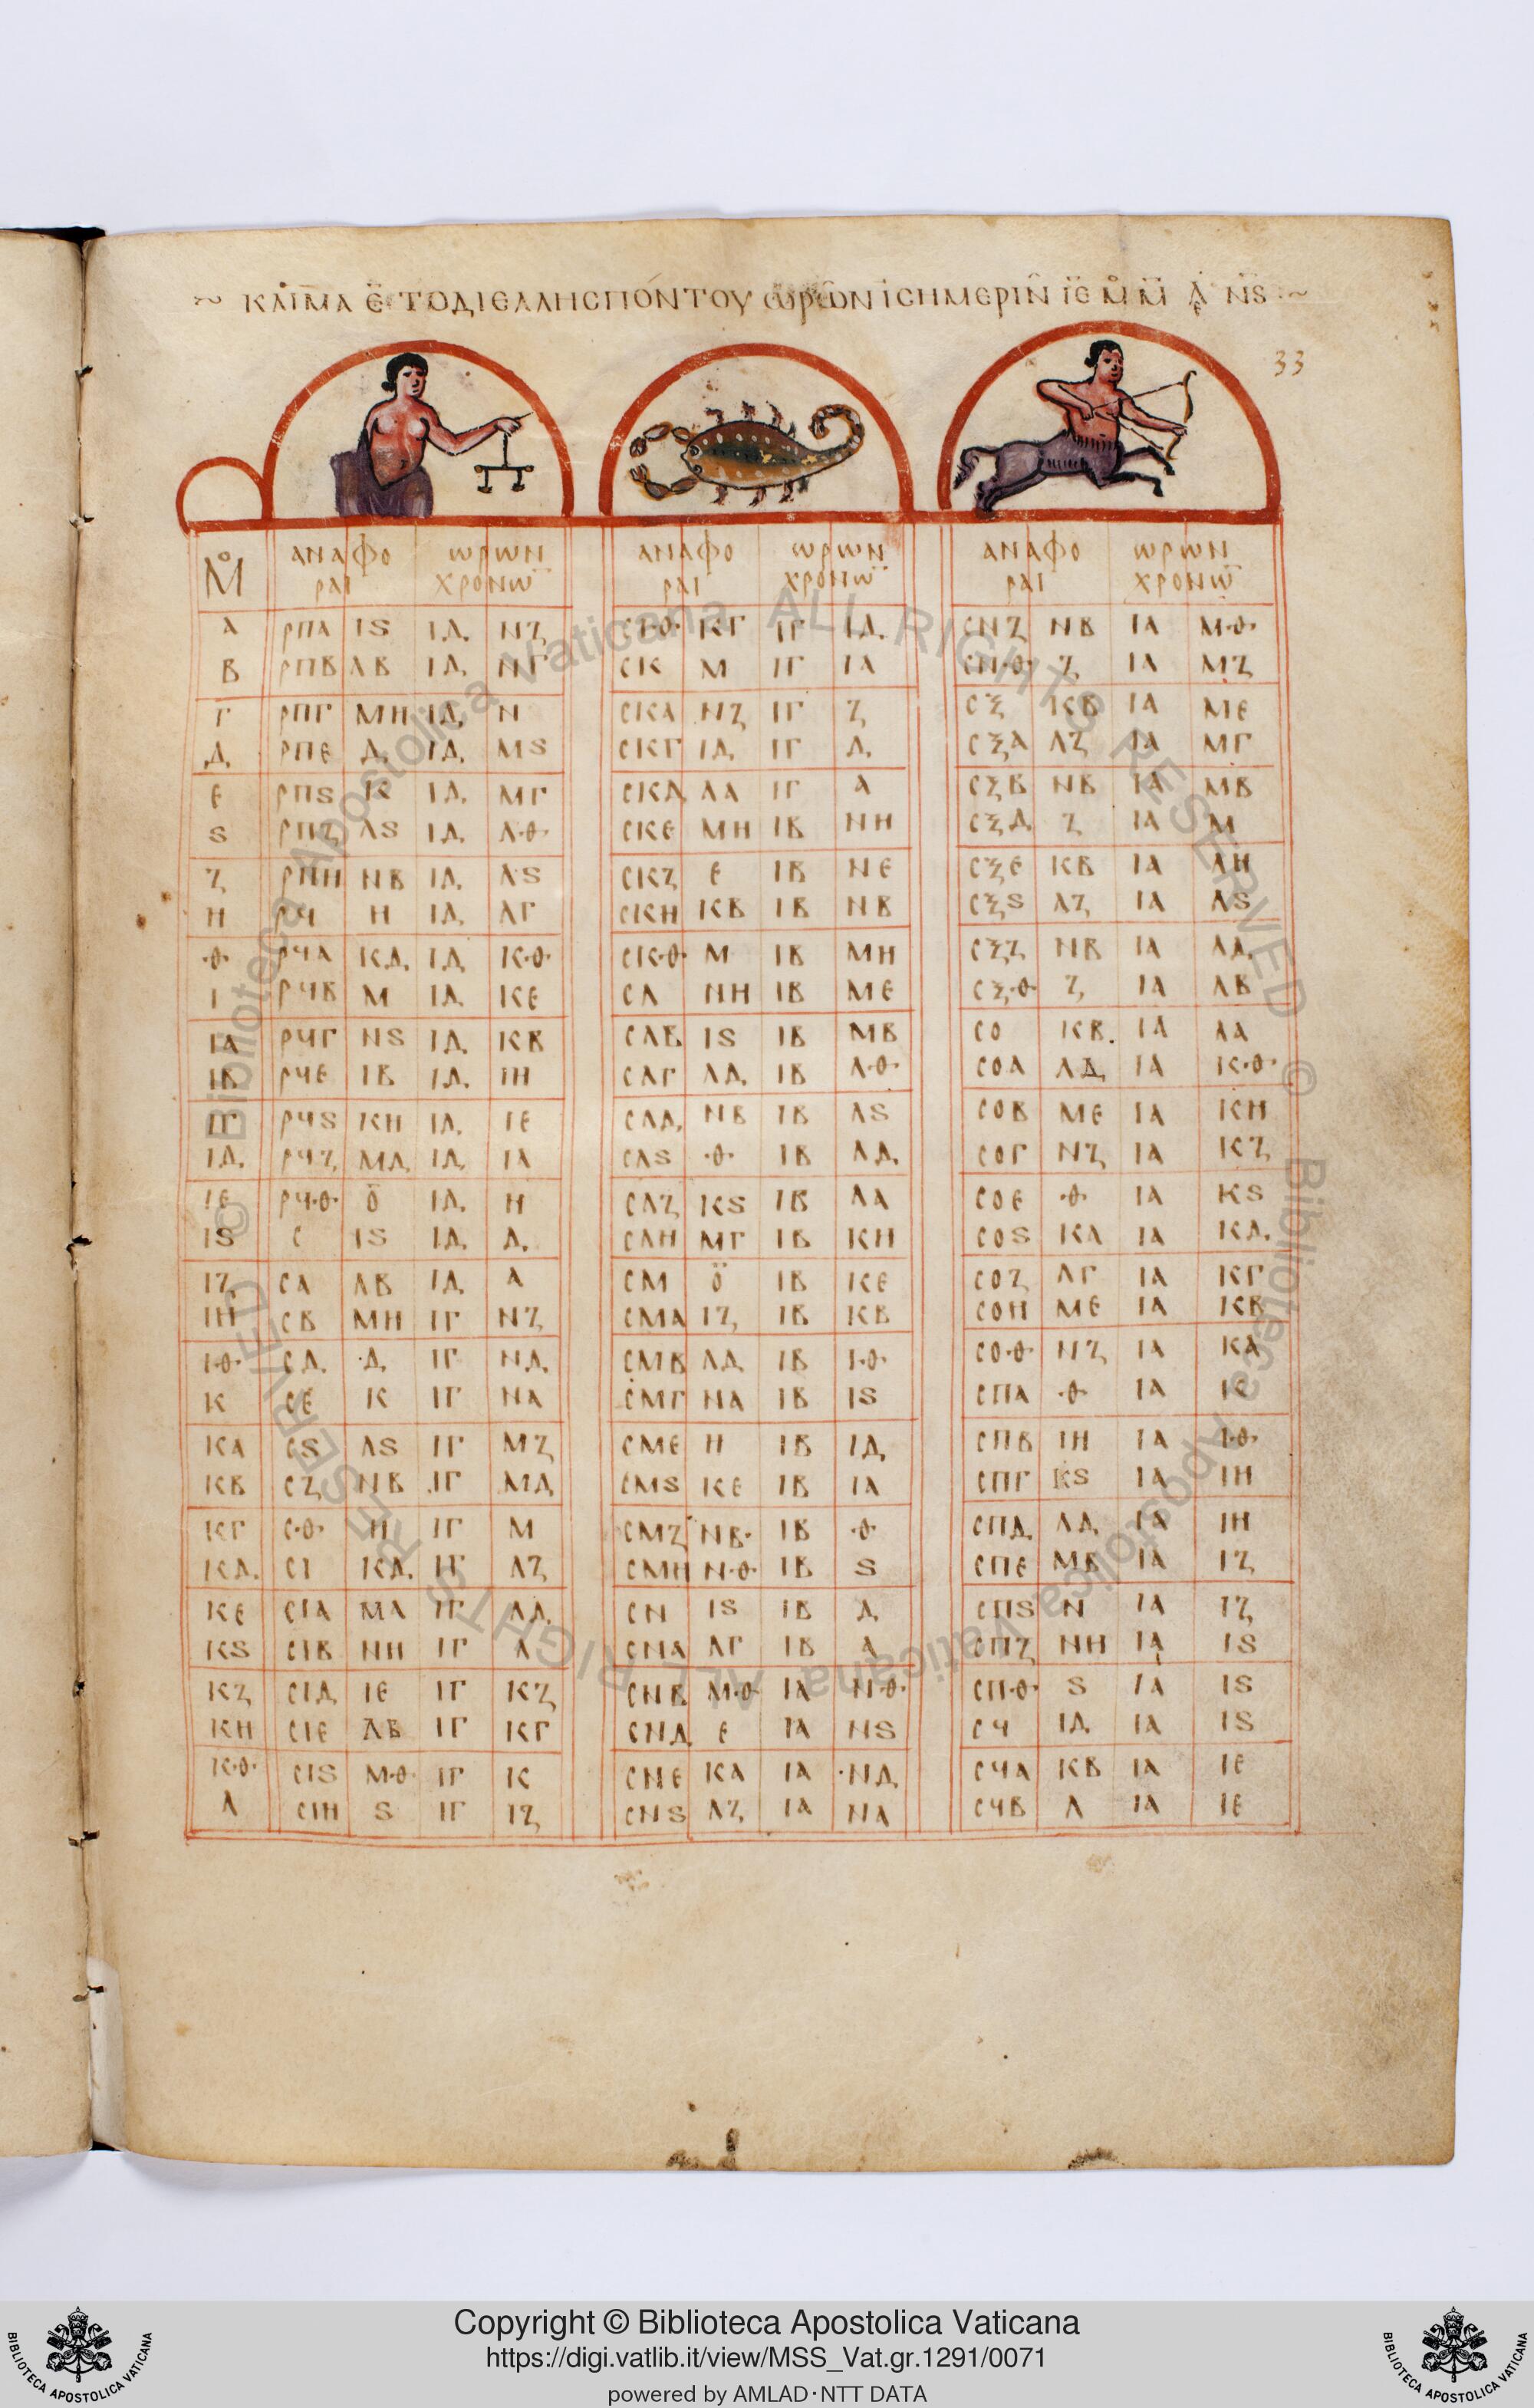 ~ ΚΛΙΜΑ Ε ΤΟ ΔΙ ΕΛΛΗCΠΟΝΤΟΥ ωΡωΝ ΙCΗΜΕΡΙΝ ΙΕ Μ Μ ΝS ~
33
Μ ΑΝΑΦΟ ωΡωΝ ΑΝΑΦΟ ωΡωΝ ΑΝΑΦΟ ωΡωΝ
ΡΑΙ ΧΡΟΝω ΡΑΙ ΧΡΟΝω ΡΑΙ ΧΡΟΝω
Α ΡΠΑ ΙS ΙΔ ΝΖ CΙΘ ΚΓ ΙΓ ΙΔ CΝΖ ΝΒ ΙΑ ΜΘ
Β ΡΠΒ ΛΒ ΙΔ ΝΓ CΚ Μ ΙΓ ΙΑ CΝΘ Ζ ΙΑ ΜΖ
Γ ΡΠΓ ΜΗ ΙΔ Ν CΚΑ ΝΖ ΙΓ Ζ CΞ ΚΒ ΙΑ ΜΕ
Δ ΡΠΕ Δ ΙΔ ΜS CΚΓ ΙΔ ΙΓ Δ CΞΑ ΛΖ ΙΑ ΜΓ
Ε ΡΠS Κ ΙΔ ΜΓ CΚΔ ΛΑ ΙΓ Α CΞΒ ΝΒ ΙΑ ΜΒ
S ΡΠΖ ΛS ΙΔ ΛΘ CΚΕ ΜΗ ΙΒ ΝΗ CΞΔ Ζ ΙΑ Μ
Ζ ΡΠΗ ΝΒ ΙΔ ΛS CΚΖ Ε ΙΒ ΝΕ CΞΕ ΚΒ ΙΑ ΛΗ
Η ΡϞ Η ΙΔ ΛΓ CΚΗ ΚΒ ΙΒ ΝΒ CΞS ΛΖ ΙΑ ΛS
Θ ΡϞΑ ΚΔ ΙΔ ΚΘ CΚΘ Μ ΙΒ ΜΗ CΞΖ ΝΒ ΙΑ ΛΔ
Ι ΡϞΒ Μ ΙΔ ΚΕ CΛ ΝΗ ΙΒ ΜΕ CΞΘ Ζ ΙΑ ΛΒ
ΙΑ ΡϞΓ ΝS ΙΔ ΚΒ CΛΒ ΙS ΙΒ ΜΒ CΟ ΚΒ ΙΑ ΛΑ
ΙΒ ΡϞΕ ΙΒ ΙΔ ΙΗ CΛΓ ΛΔ ΙΒ ΛΘ CΟΑ ΛΔ ΙΑ ΚΘ
ΙΓ ΡϞS ΚΗ ΙΔ ΙΕ CΛΔ ΝΒ ΙΒ ΛS CΟΒ ΜΕ ΙΑ ΚΗ
ΙΔ ΡϞΖ ΜΔ ΙΔ ΙΑ CΛS Θ ΙΒ ΛΔ CΟΓ ΝΖ ΙΑ ΚΖ
ΙΕ ΡϞΘ Ο ΙΔ Η CΛΖ ΚS ΙΒ ΛΑ CΟΕ Θ ΙΑ ΚS
ΙS C ΙS ΙΔ Δ CΛΗ ΜΓ ΙΒ ΚΗ CΟS ΚΑ ΙΑ ΚΔ
ΙΖ CΑ ΛΒ ΙΔ Α CΜ Ο ΙΒ ΚΕ CΟΖ ΛΓ ΙΑ ΚΓ
ΙΗ CΒ ΜΗ ΙΓ ΝΖ CΜΑ ΙΖ ΙΒ ΚΒ CΟΗ ΜΕ ΙΑ ΚΒ
ΙΘ CΔ Δ ΙΓ ΝΔ CΜΒ ΛΔ ΙΒ ΙΘ CΟΘ ΝΖ ΙΑ ΚΑ
Κ CΕ Κ ΙΓ ΝΑ CΜΓ ΝΑ ΙΒ ΙS CΠΑ Θ ΙΑ Κ
ΚΑ CS ΛS ΙΓ ΜΖ CΜΕ Η ΙΒ ΙΔ CΠΒ ΙΗ ΙΑ ΙΘ
ΚΒ CΖ ΝΒ ΙΓ ΜΔ CΜS ΚΕ ΙΒ ΙΑ CΠΓ ΚS ΙΑ ΙΗ
ΚΓ CΘ Η ΙΓ Μ CΜΖ ΝΒ ΙΒ Θ CΠΔ ΛΔ ΙΑ ΙΗ
ΚΔ CΙ ΚΔ ΙΓ ΛΖ CΜΗ ΝΘ ΙΒ S CΠΕ ΜΒ ΙΑ ΙΖ
ΚΕ CΙΑ ΜΑ ΙΓ ΛΔ CΝ ΙS ΙΒ Δ CΠS Ν ΙΑ ΙΖ
ΚS CΙΒ ΝΗ ΙΓ Λ CΝΑ ΛΓ ΙΒ Α CΠΖ ΝΗ ΙΑ ΙS
ΚΖ CΙΔ ΙΕ ΙΓ ΚΖ CΝΒ ΜΘ ΙΑ ΝΘ CΠΘ S ΙΑ ΙS
ΚΗ CΙΕ ΛΒ ΙΓ ΚΓ CΝΔ Ε ΙΑ ΝS CϞ ΙΔ ΙΑ ΙS
ΚΘ CΙS ΜΘ ΙΓ Κ CΝΕ ΚΑ ΙΑ ΝΔ CϞΑ ΚΒ ΙΑ ΙΕ
Λ CΙΗ S ΙΓ ΙΖ CΝS ΛΖ ΙΑ ΝΑ CϞΒ Λ ΙΑ ΙΕ
© Biblioteca Apostolica Vaticana ALL RIGHTS RESERVED © Biblioteca Apostolica Vaticana ALL RIGHTS RESERVED
Copyright © Biblioteca Apostolica Vaticana
https://digi.vatlib.it/view/MSS_Vat.gr.1291/0071
powered by AMLAD·NTT DATA
BIBLIOTECA APOSTOLICA VATICANA
BIBLIOTECA APOSTOLICA VATICANA